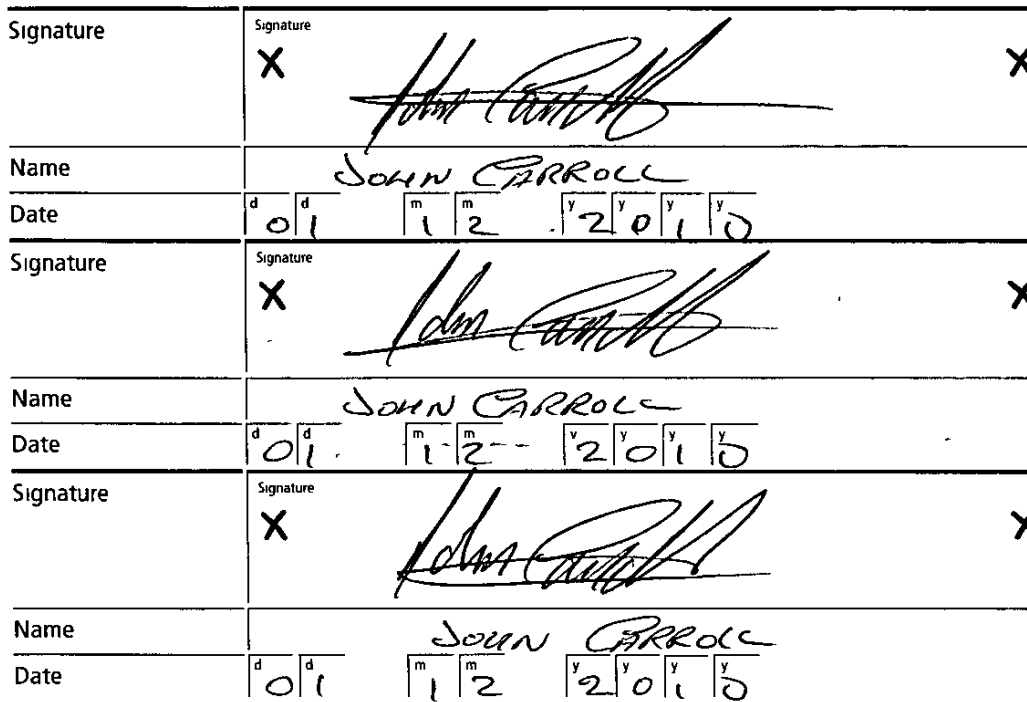 Signature Signature
X John Carroll X
Name JOHN CARROLL
Date d 0 d 1 m 1 m 2 y 2 y 0 y 1 y 0
Signature Signature
X John Carroll X
Name JOHN CARROLL
Date d 0 d 1 m 1 m 2 y 2 y 0 y 1 y 0
Signature Signature
X John Carroll X
Name JOHN CARROLL
Date d 0 d 1 m 1 m 2 y 2 y 0 y 1 y 0